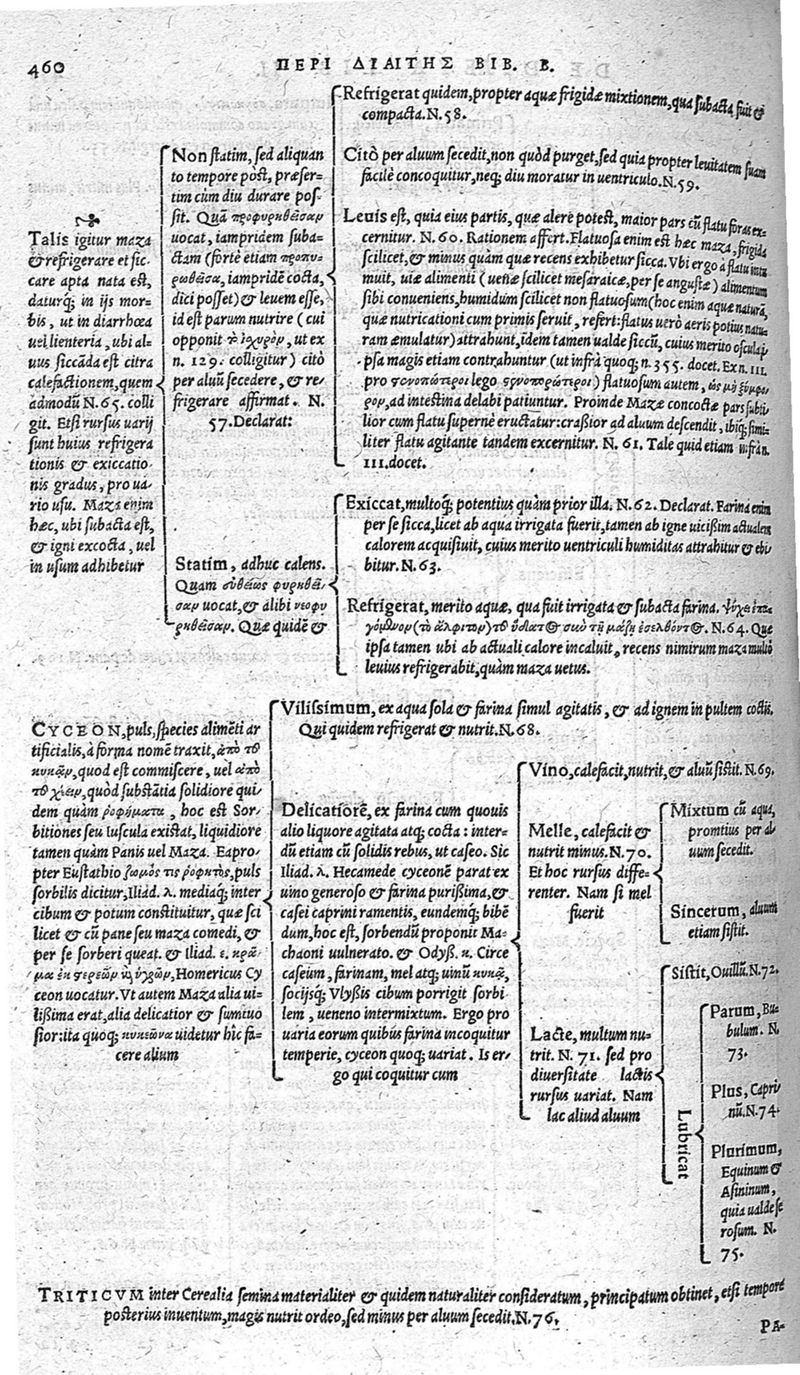 460
ΠΕΡΙ ΔΙΑΙΤΗΣ ΒΙΒ. Β.
Talis igitur maza
& refrigerare et sic-
care apta nata est,
daturq; in ijs mor-
bis, ut in diarrhœa
uel lienteria, ubi al-
uus siccãda est citra
calefactionem, quem
admodũ N. 65. colli
git. Etsi rursus uarij
sunt huius refrigera
tionis & exiccatio-
nis gradus, pro ua-
rio usu. Maza enim
hæc, ubi subacta est,
& igni excocta, uel
in usum adhibetur
Non statim, sed aliquan
to tempore post, præser-
tim cùm diu durare pos-
sit. Quã προφυρηθεῖσαν
uocat, iampridem suba-
ctam (fortè etiam προπυ-
ρωθεῖσα, iampridẽ cocta,
dici posset) & leuem esse,
id est parum nutrire (cui
opponit τὸ ἰσχυρὸν, ut ex
n. 129. colligitur) citò
per aluũ secedere, & re-
frigerare affirmat. N.
57. Declarat:
Refrigerat quidem, propter aquæ frigidæ mixtionem, qua subacta fuit &
compacta. N. 58.
Citò per aluum secedit, non quòd purget, sed quia propter leuitatem suam
facilè concoquitur, neq; diu moratur in uentriculo. N. 59.
Leuis est, quia eius partis, quæ alere potest, maior pars cũ flatu foras ex-
cernitur. N. 60. Rationem affert. Flatuosa enim est hæc maza, frigida
scilicet, & minus quàm quæ recens exhibetur sicca. Vbi ergo à flatu intu
muit, uiæ alimenti (uenæ scilicet mesaraicæ, per se angustæ) alimentum
sibi conueniens, humidum scilicet non flatuosum (hoc enim aquæ natura,
quæ nutricationi cum primis seruit, refert: flatus uerò aeris potius natu-
ram æmulatur) attrahunt, idem tamen ualde siccũ, cuius merito oscula i-
psa magis etiam contrahuntur (ut infrà quoq; n. 355. docet. Ex n. 111.
pro στενοπώτεροι lego στενοπορώτεροι) flatuosum autem, ὡς μὴ ξύμφο-
ρον, ad intestina delabi patiuntur. Proinde Mazæ concoctæ pars subti-
lior cum flatu supernè eructatur: crassior ad aluum descendit, ibiq; simi-
liter flatu agitante tandem excernitur. N. 61. Tale quid etiam infrà n.
111. docet.
Statim, adhuc calens.
Quam εὐθέως φυρηθεῖ-
σαν uocat, & alibi νεοφυ
ρηθεῖσαν. Quæ quidẽ &
Exiccat, multoq; potentius quàm prior illa. N. 62. Declarat. Farina enim
per se sicca, licet ab aqua irrigata fuerit, tamen ab igne uicißim actualem
calorem acquisiuit, cuius merito uentriculi humiditas attrahitur & ebi-
bitur. N. 63.
Refrigerat, merito aquæ, qua fuit irrigata & subacta farina. N. 64. Quæ
ipsa tamen ubi ab actuali calore incaluit, recens nimirum maza multò
leuius refrigerabit, quàm maza uetus.
CYCEON, puls, species alimẽti ar
tificialis, à forma nomẽ traxit, ἀπὸ τοῦ
κυκᾷν, quod est commiscere, uel ἀπὸ
τοῦ χέειν, quòd substãtia solidiore qui
dem quàm ῥοφήματα, hoc est Sor-
bitiones seu Iuscula existat, liquidiore
tamen quàm Panis uel Maza. Eapro-
pter Eustathio ζωμός τις ῥοφητὸς, puls
sorbilis dicitur, Iliad. λ. mediaq; inter
cibum & potum constituitur, quæ sci
licet & cũ pane seu maza comedi, &
per se sorberi queat. & Iliad. ε. κρᾶ-
μα ἐκ στερεῶν καὶ ὑγρῶν, Homericus Cy
ceon uocatur. Vt autem Maza alia ui-
lißima erat, alia delicatior & sumtuo
sior: ita quoq; κυκεῶνα uidetur hic fa-
cere alium
Vilissimum, ex aqua sola & farina simul agitatis, & ad ignem in pultem coctis.
Qui quidem refrigerat & nutrit. N. 68.
Delicatiorẽ, ex farina cum quouis
alio liquore agitata atq; cocta: inter-
dũ etiam cũ solidis rebus, ut caseo. Sic
Iliad. λ. Hecamede cyceonẽ parat ex
uino generoso & farina purißima, &
casei caprini ramentis, eundemq; bibẽ
dum, hoc est, sorbendũ proponit Ma-
chaoni uulnerato. & Odyß. κ. Circe
caseum, farinam, mel atq; uinũ κυκᾷ,
socijsq; Vlyßis cibum porrigit sorbi
lem, ueneno intermixtum. Ergo pro
uaria eorum quibus farina incoquitur
temperie, cyceon quoq; uariat. Is er-
go qui coquitur cum
Vino, calefacit, nutrit, & aluũ sistit. N. 69.
Melle, calefacit &
nutrit minus. N. 70.
Et hoc rursus diffe-
renter. Nam si mel
fuerit
Mixtum cũ aqua,
promtius per al-
uum secedit.
Sincerum, aluum
etiam sistit.
Lacte, multum nu-
trit. N. 71. sed pro
diuersitate lactis
rursus uariat. Nam
lac aliud aluum
Sistit, Ouillũ. N. 72.
Lubricat
Parum, Bu-
bulum. N.
73.
Plus, Capri
nũ. N. 74.
Plurimum,
Equinum &
Asininum,
quia ualde se
rosum. N.
75.
TRITICVM inter Cerealia semina materialiter & quidem naturaliter consideratum, principatum obtinet, etsi tempore
posterius inuentum, magis nutrit ordeo, sed minus per aluum secedit. N. 76.
PA-